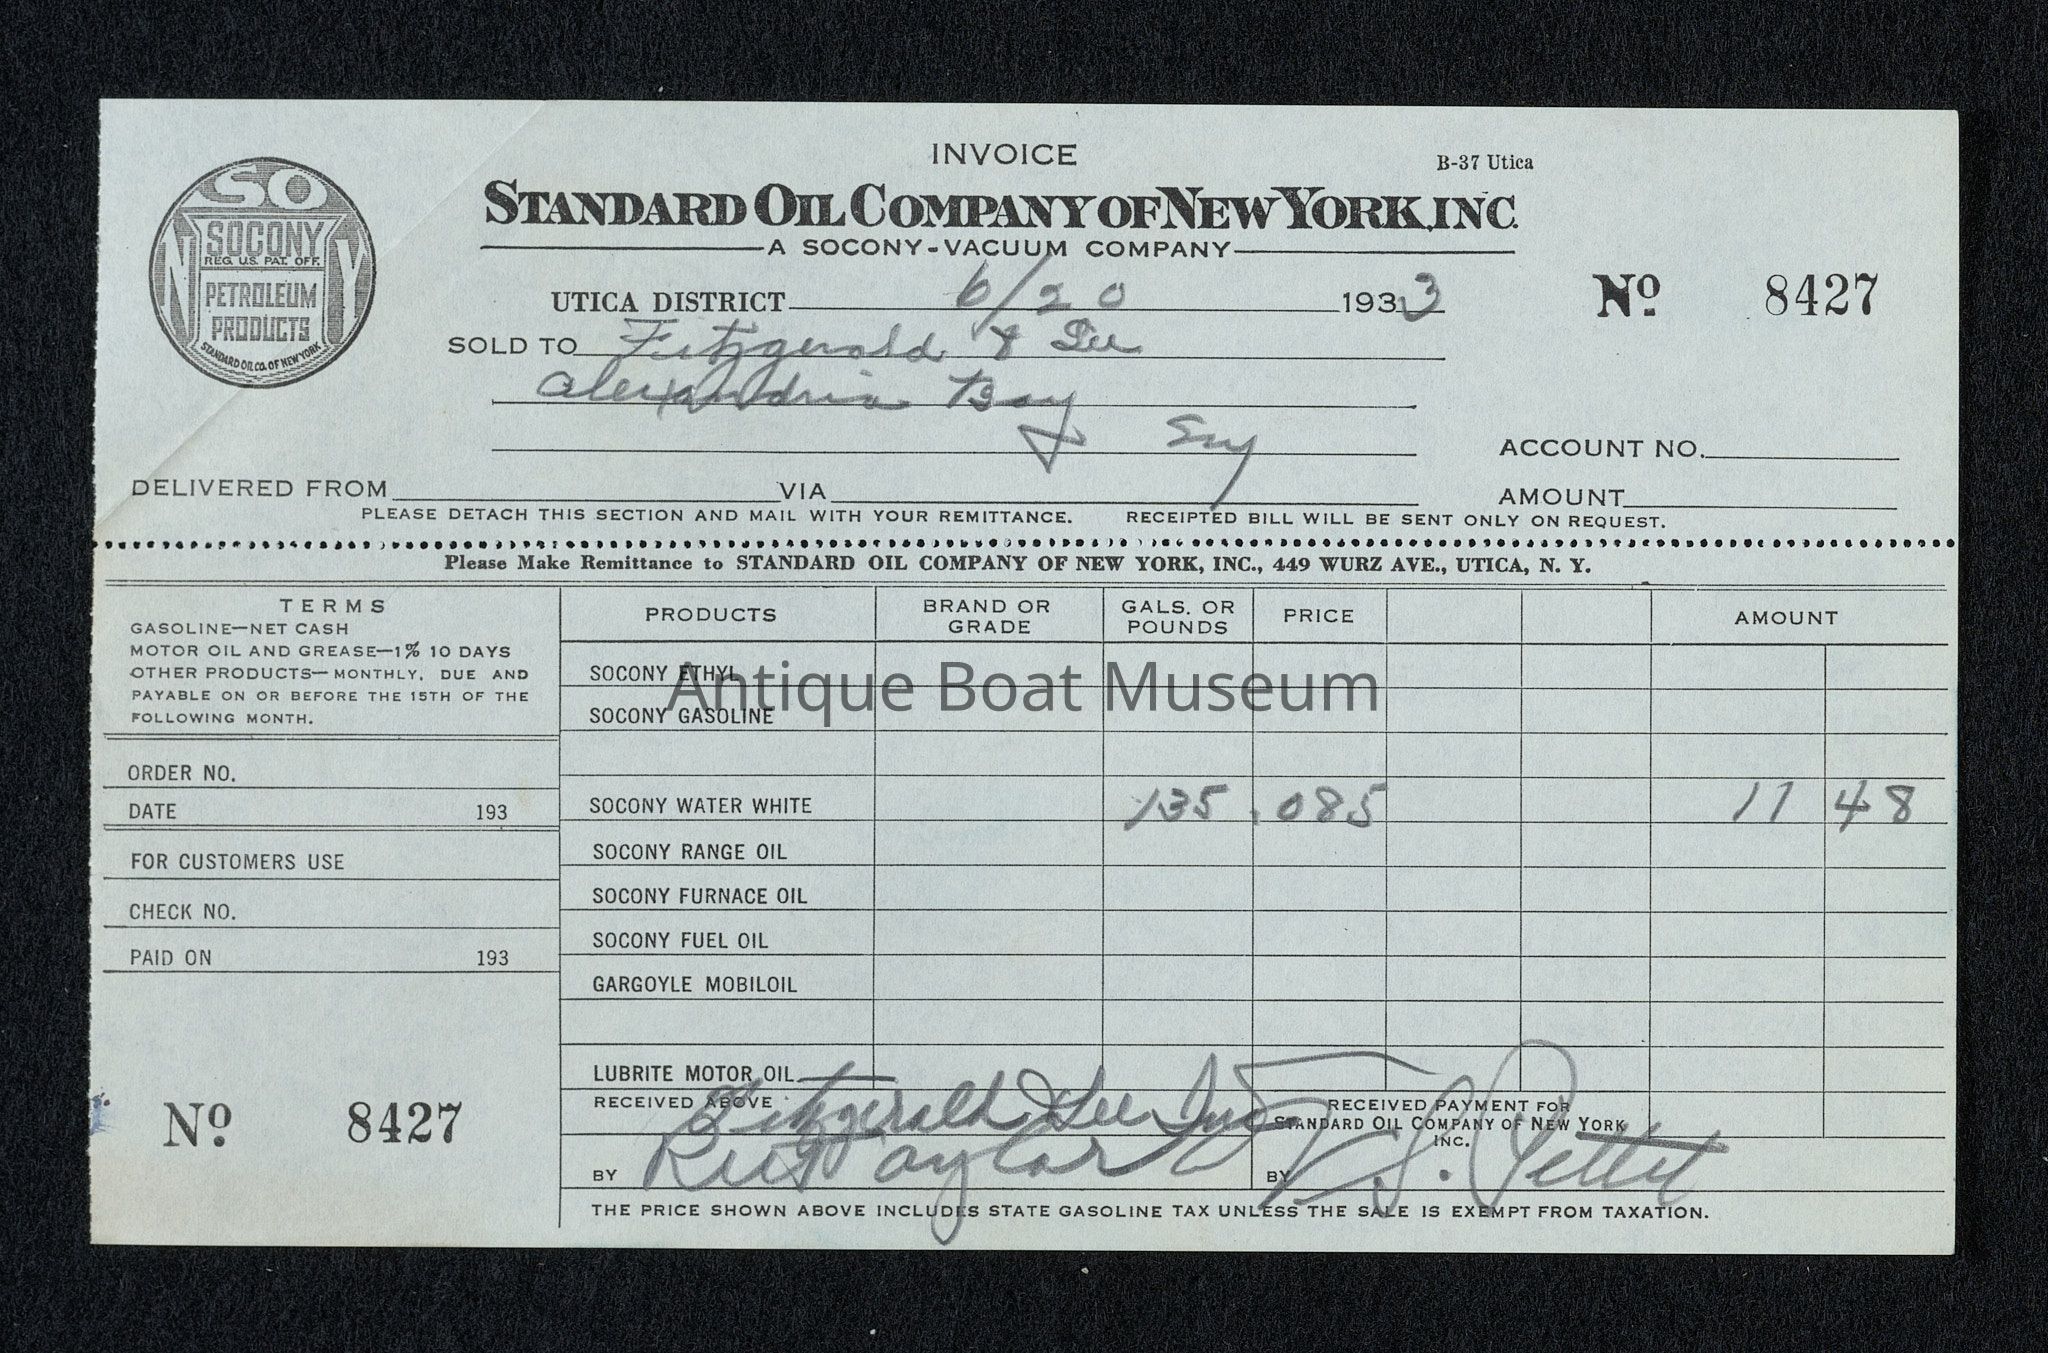 INVOICE
B-37 Utica
STANDARD OIL COMPANY OF NEW YORK, INC.
A SOCONY-VACUUM COMPANY
SO
N Y
SOCONY
REG. U.S. PAT. OFF.
PETROLEUM
PRODUCTS
STANDARD OIL CO. OF NEW YORK
UTICA DISTRICT 6/20 1933
No 8427
SOLD TO Fitzgerald & Lee
Alexandria Bay
ACCOUNT NO.
DELIVERED FROM VIA AMOUNT
PLEASE DETACH THIS SECTION AND MAIL WITH YOUR REMITTANCE. RECEIPTED BILL WILL BE SENT ONLY ON REQUEST.
Please Make Remittance to STANDARD OIL COMPANY OF NEW YORK, INC., 449 WURZ AVE., UTICA, N. Y.
TERMS
GASOLINE—NET CASH
MOTOR OIL AND GREASE—1% 10 DAYS
OTHER PRODUCTS—MONTHLY, DUE AND
PAYABLE ON OR BEFORE THE 15TH OF THE
FOLLOWING MONTH.
ORDER NO.
DATE 193
FOR CUSTOMERS USE
CHECK NO.
PAID ON 193
No 8427
PRODUCTS BRAND OR GRADE GALS. OR POUNDS PRICE AMOUNT
SOCONY ETHYL
Antique Boat Museum
SOCONY GASOLINE
SOCONY WATER WHITE 135 .085 11 48
SOCONY RANGE OIL
SOCONY FURNACE OIL
SOCONY FUEL OIL
GARGOYLE MOBILOIL
LUBRITE MOTOR OIL
RECEIVED ABOVE Fitzgerald & Lee Inc
BY Taylor
RECEIVED PAYMENT FOR
STANDARD OIL COMPANY OF NEW YORK
INC.
BY Pettit
THE PRICE SHOWN ABOVE INCLUDES STATE GASOLINE TAX UNLESS THE SALE IS EXEMPT FROM TAXATION.